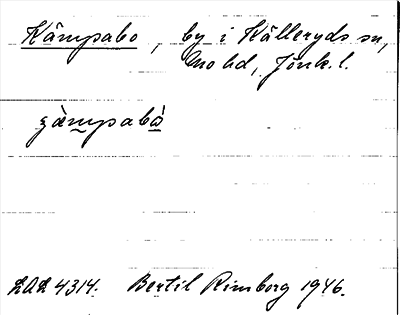 Kämpsabo, by i Källeryds sn,
Mo hd, Jönk. l.
ʒàmpsabò
LAL 4314. Bertil Rimborg 1946.